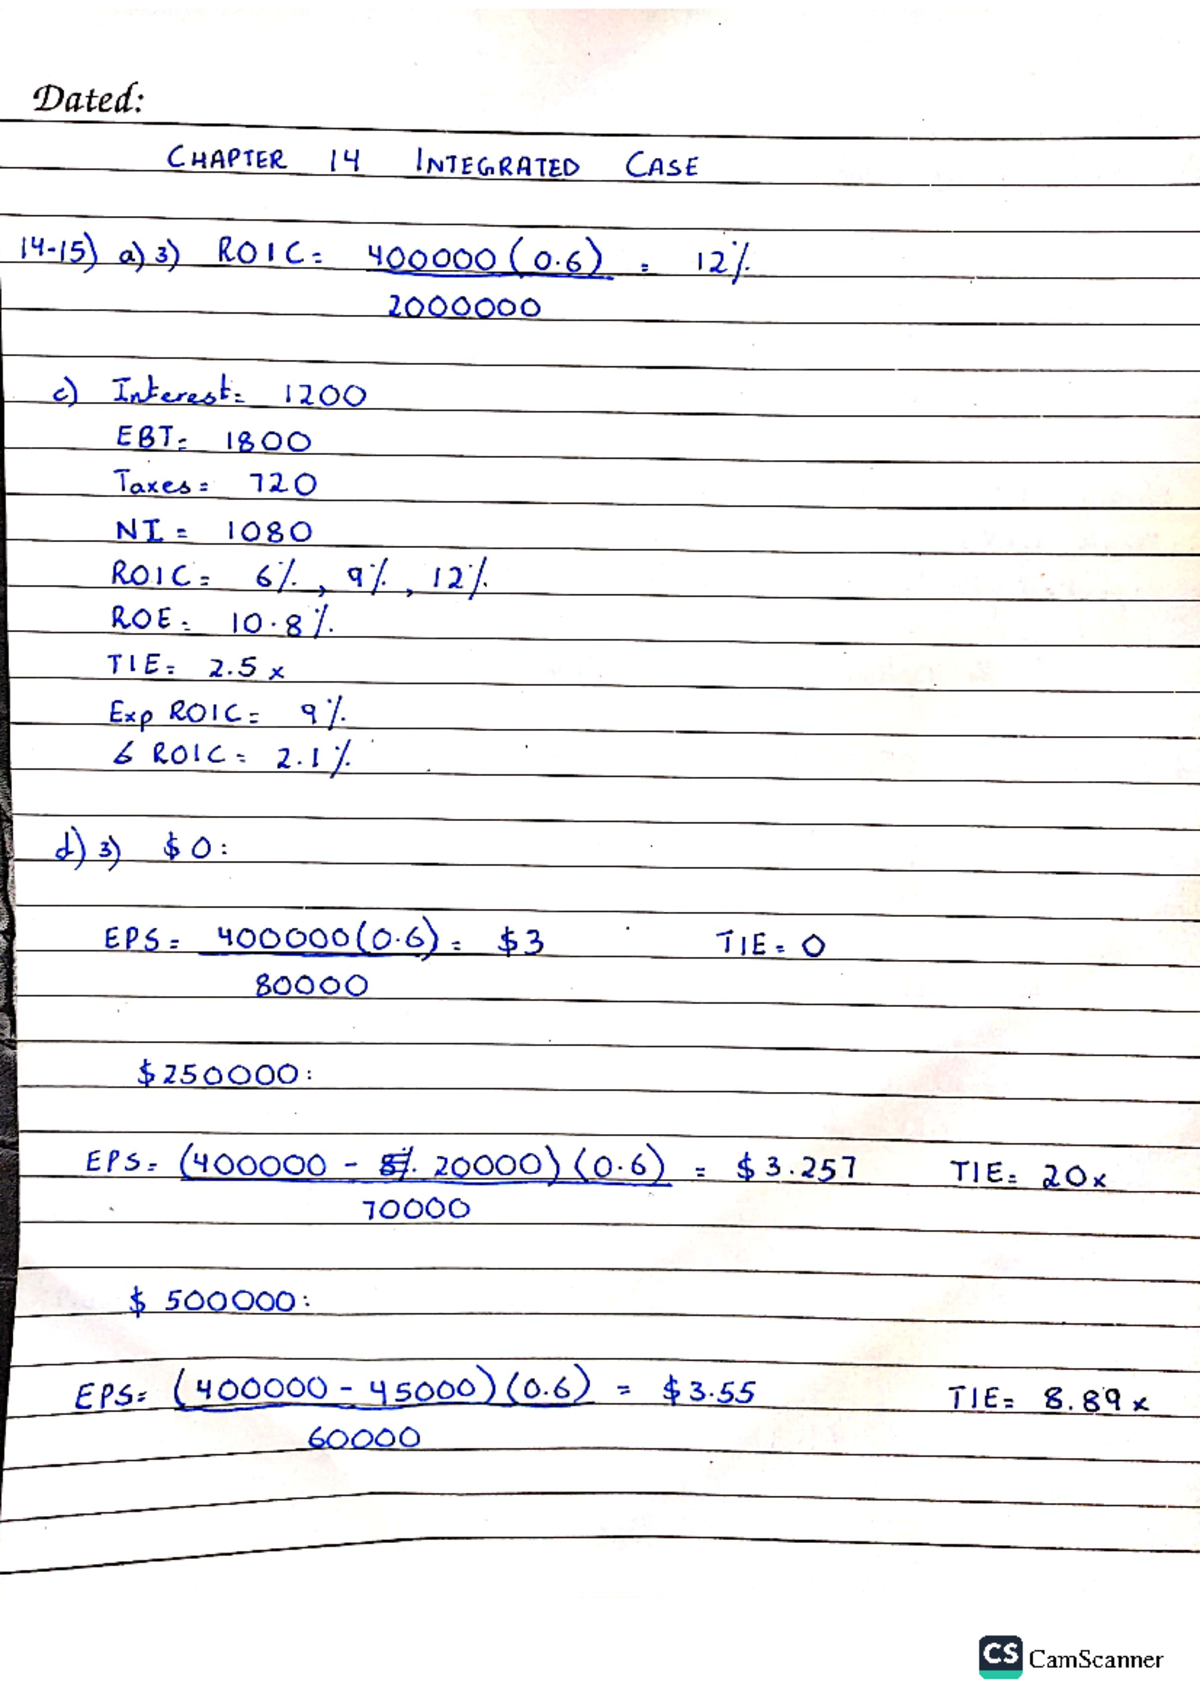 Dated:
CHAPTER 14 INTEGRATED CASE
14-15) a) 3) ROIC = 400000 (0.6) = 12%
2000000
c) Interest = 1200
EBT = 1800
Taxes = 720
NI = 1080
ROIC = 6%, 9%, 12%
ROE = 10.8%
TIE = 2.5 x
Exp ROIC = 9%
6 ROIC = 2.1%
d) 3) $0:
EPS = 400000(0.6) = $3 TIE = 0
80000
$250000:
EPS = (400000 - 20000)(0.6) = $3.257 TIE = 20x
70000
$ 500000:
EPS = (400000 - 45000)(0.6) = $3.55 TIE = 8.89 x
60000
CS CamScanner